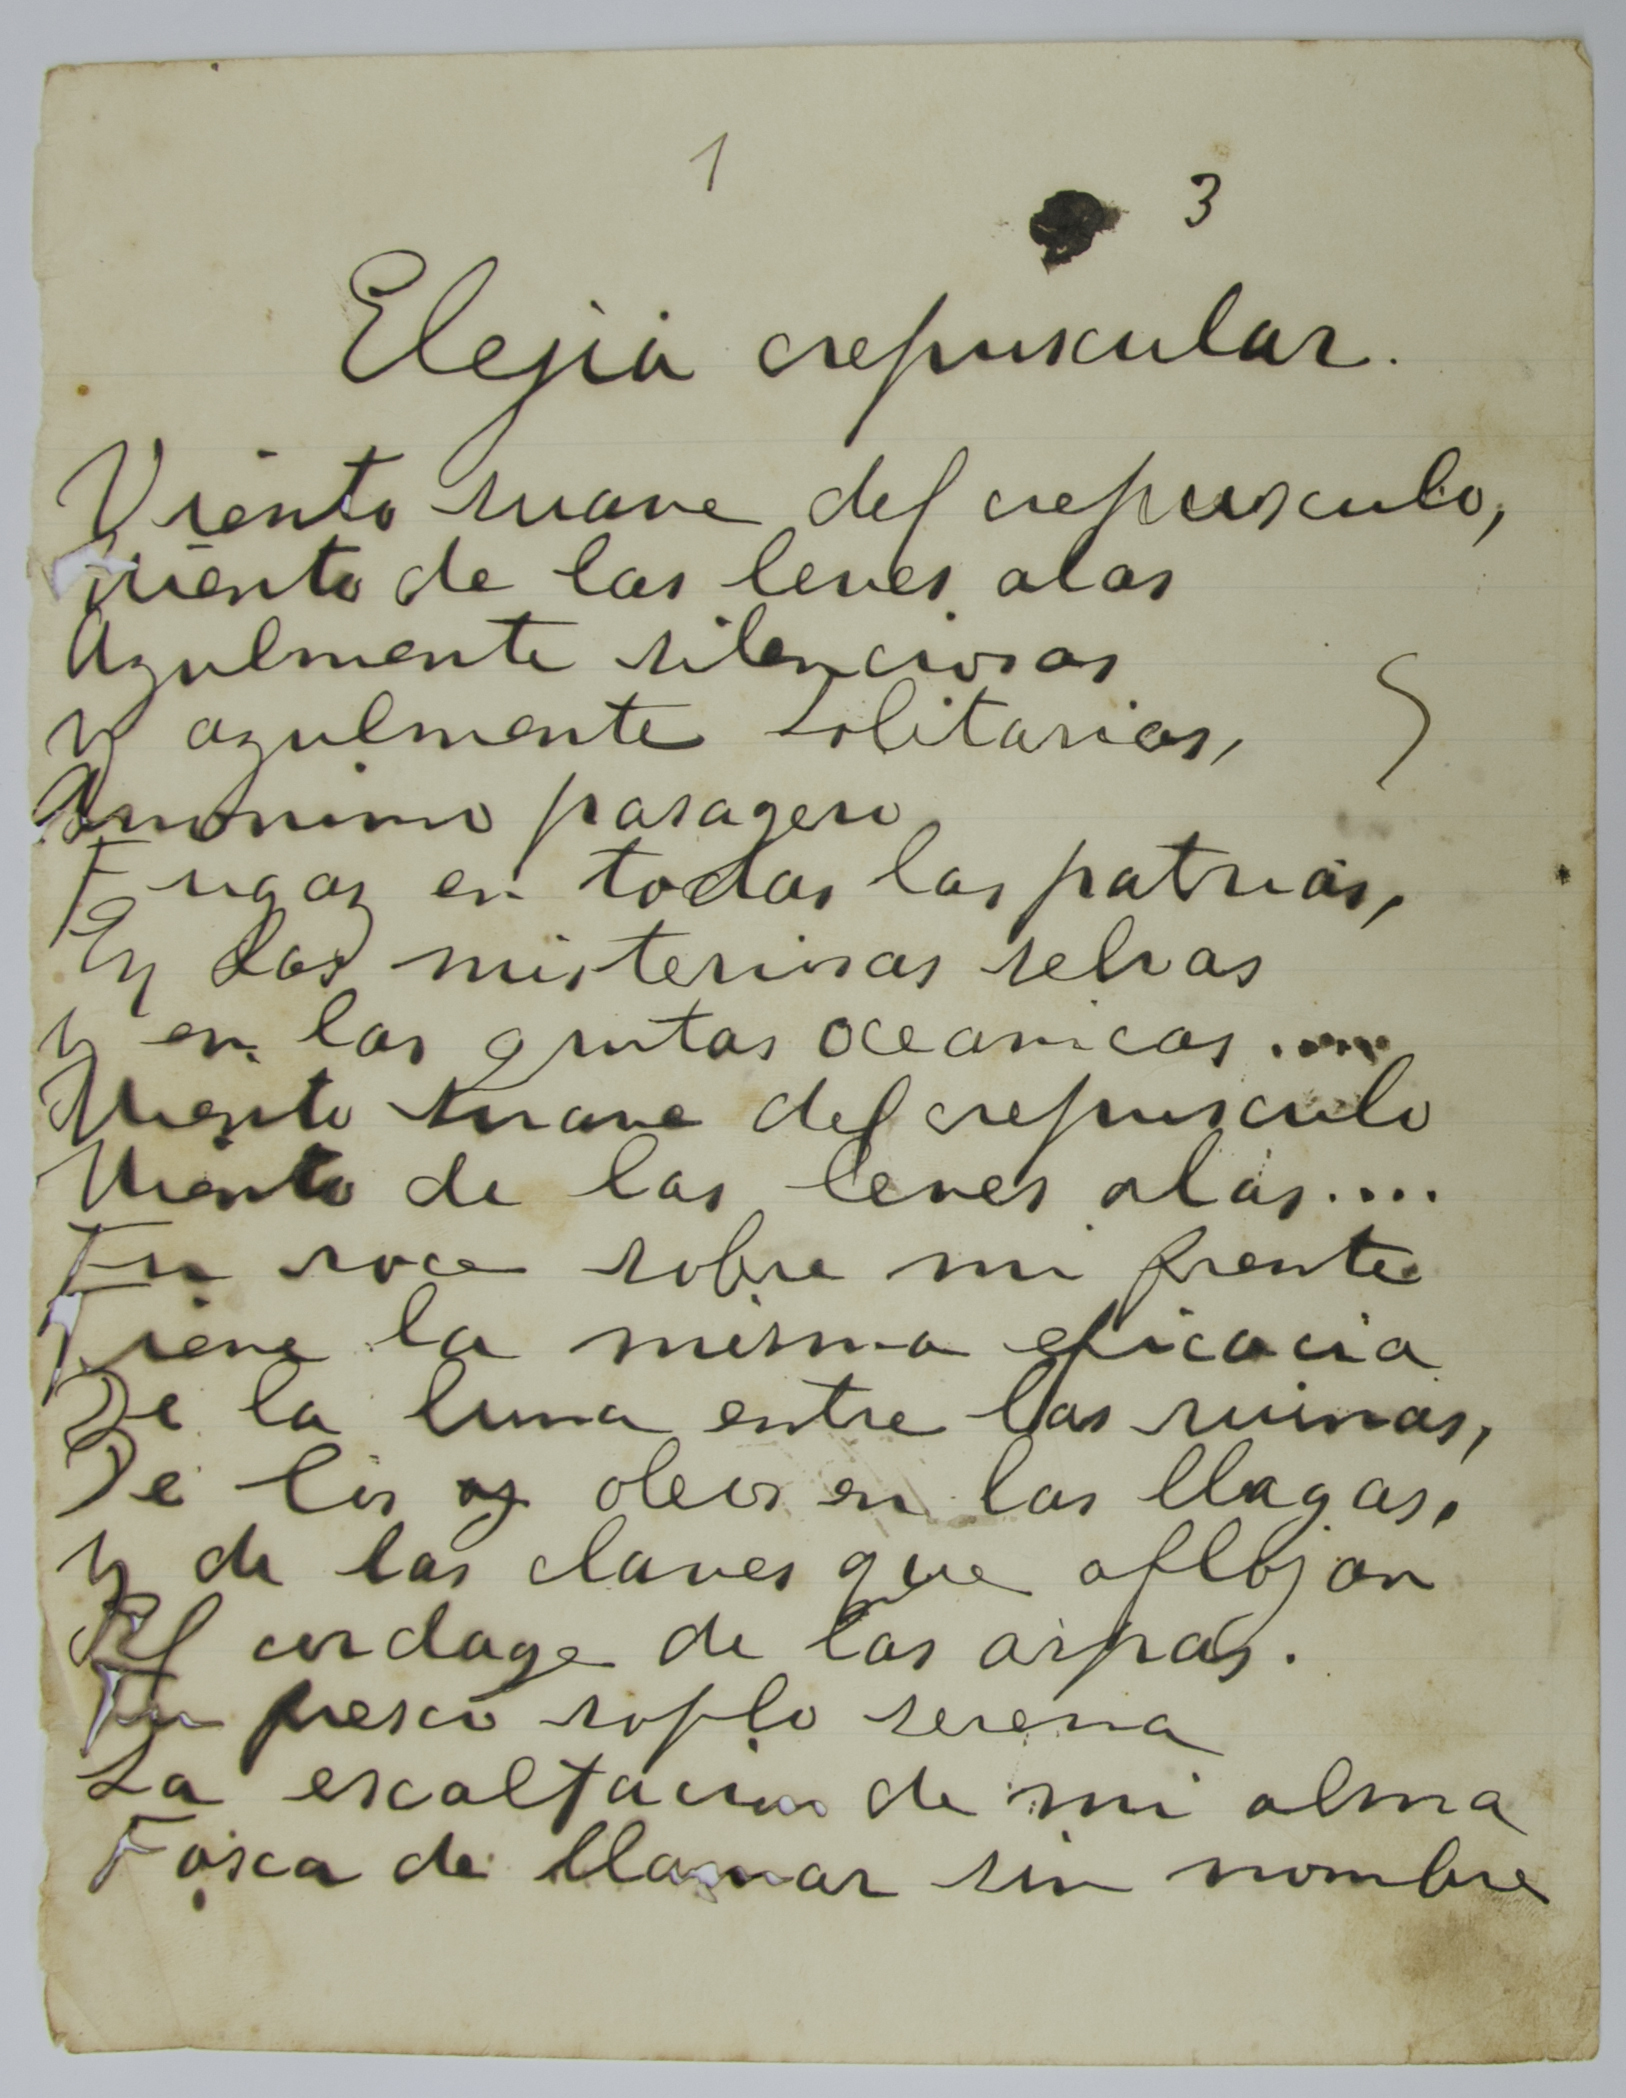 1
3
Elejia crepuscular.
Viento suave del crepusculo,
Viento de las leves alas
Azulmente silenciosas
y azulmente solitarias,
Anonimo pasagero
Fugaz en todas las patrias,
En las misteriosas selvas
y en las grutas oceanicas.....
Viento suave del crepusculo
Viento de las leves alas....
Tu roce sobre mi frente
Tiene la misma eficacia
De la luna entre las ruinas,
De los oleos en las llagas,
y de las claves que aflojan
El cordage de las arpas.
Tu fresco soplo serena
La escaltacion de mi alma
Fosca de llamar sin nombre